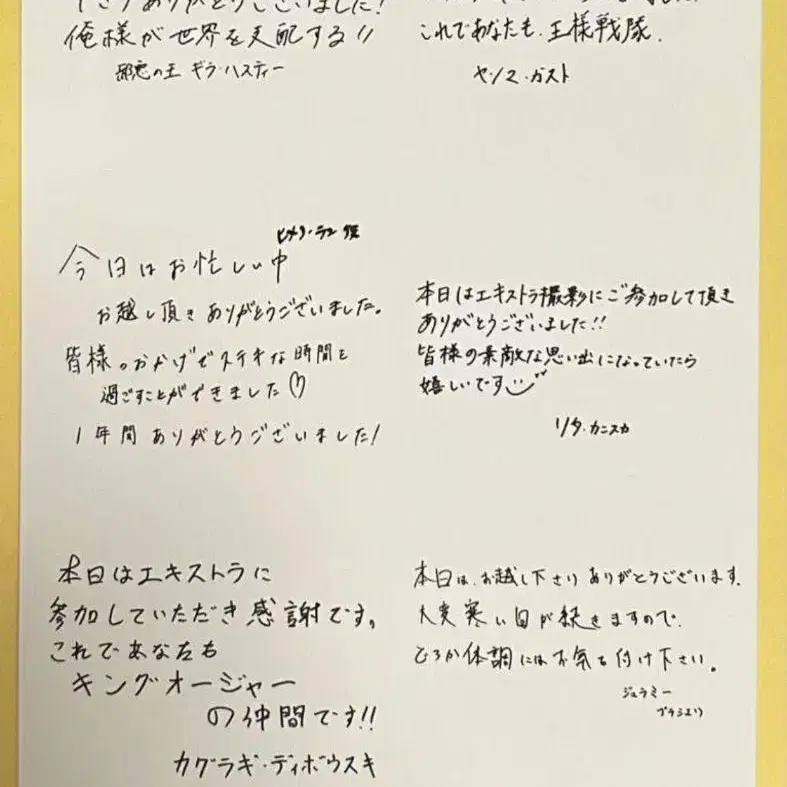 下さりありがとうございました!
俺様が世界を支配する!!
邪悪の王 ギラ・ハスティー
これであなたも、王様戦隊。
ヤンマ・ガスト
ヒメノ・ラン 役
今日はお忙しい中
お越し頂きありがとうございました。
皆様のおかげでステキな時間を
過ごすことができました♡
1年間ありがとうございました!
本日はエキストラ撮影にご参加して頂き
ありがとうございました!!
皆様の素敵な思い出になっていたら
嬉しいです
リタ・カニスカ
本日はエキストラに
参加していただき感謝です。
これであなたも
キングオージャー
の仲間です!!
カグラギ・ディボウスキ
本日は、お越し下さりありがとうございます。
大変寒い日が続きますので、
どうか体調にはお気を付け下さい。
ジェラミー
ブラシエリ